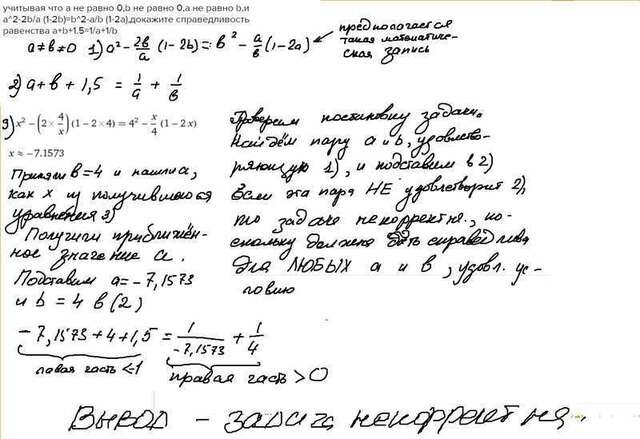 учитывая что a не равно 0,b не равно 0,a не равно b.и
a^2-2b/a (1-2b)=b^2-a/b (1-2a),докажите справедливость
равенства a+b+1.5=1/a+1/b
a≠b≠0 1) a² - 2b/a (1-2b) = b² - a/b (1-2a)
предпологается
такая математиче-
ская запись
2) a+b+1,5 = 1/a + 1/b
3) x² - (2 × 4/x) (1 - 2 × 4) = 4² - x/4 (1 - 2x)
x ≈ -7.1573
Приняли b=4 и нашли a,
как x из получившегося
уравнения 3)
Получили приближён-
ное значение a.
Подставим a = -7,1573
и b = 4 в (2)
Проверим постановку задачи.
Найдём пару a и b, удовлетво-
ряющую 1), и подставим в 2)
Если эта пара НЕ удовлетворит 2),
то задача некорректна, по-
скольку должна быть справедлива
для ЛЮБЫХ a и b, удовл. ус-
ловию
-7,1573 + 4 + 1,5 = 1/-7,1573 + 1/4
левая часть <-1
правая часть >0
Вывод - задача некорректна.